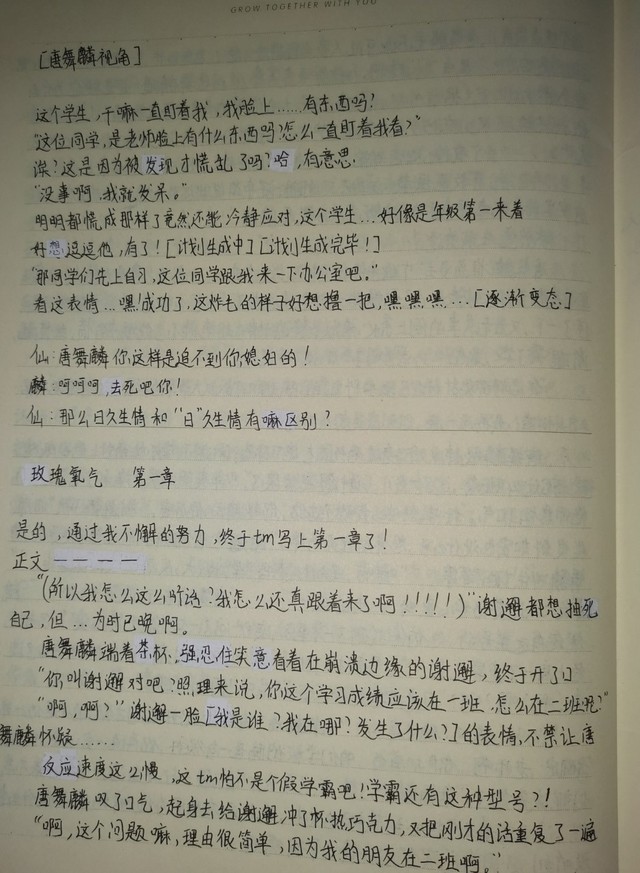 GROW TOGETHER WITH YOU
[唐舞麟视角]
这个学生，干嘛一直盯着我，我脸上……有东西吗？
“这位同学，是老师脸上有什么东西吗？怎么一直盯着我看？”
诶？这是因为被发现才慌乱了吗？哈，有意思.
“没事啊，我就发呆。”
明明都慌成那样了竟然还能冷静应对，这个学生…好像是年级第一来着
好想逗逗他，有了！[计划生成中][计划生成完毕！]
“那同学们先上自习，这位同学跟我来一下办公室吧。”
看这表情…嘿！成功了，这炸毛的样子好想撸一把，嘿嘿嘿…[逐渐变态]
仙：唐舞麟你这样是追不到你媳妇的！
麟：呵呵呵，去死吧你！
仙：那么日久生情和“日”久生情有嘛区别？
玫瑰氧气 第一章
是的，通过我不懈的努力，终于tm写上第一章了！
正文————
“(所以我怎么这么听话？我怎么还真跟着来了啊！！！！！)”谢邂都想抽死
自己，但…为时已晚啊。
唐舞麟端着茶杯，强忍住笑意看着在崩溃边缘的谢邂，终于开了口
“你叫谢邂对吧？照理来说，你这个学习成绩应该在一班，怎么在二班呢？”
“啊，啊？”谢邂一脸[我是谁？我在哪？发生了什么？]的表情，不禁让唐
舞麟怀疑……
反应速度这么慢，这tm怕不是个假学霸吧！学霸还有这种型号？！
唐舞麟叹了口气，起身去给谢邂冲了杯热巧克力，又把刚才的话重复了一遍
“啊，这个问题嘛，理由很简单，因为我的朋友在二班啊。”